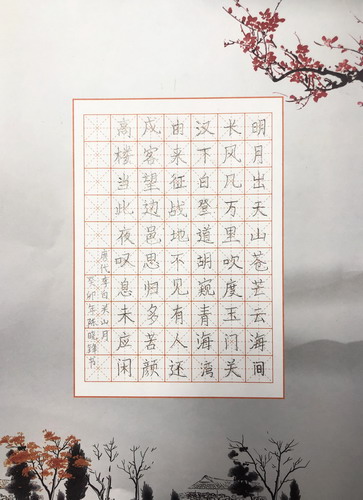 明月出天山苍茫云海间
长风几万里吹度玉门关
汉下白登道胡窥青海湾
由来征战地不见有人还
戍客望边邑思归多苦颜
高楼当此夜叹息未应闲
唐代李白关山月
癸卯年陈晓锋书